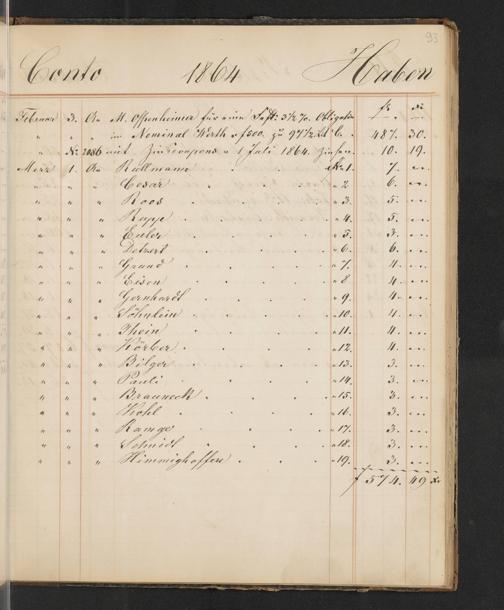 93
Conto 1864 Haben
fr. xr
Februar 3. An M. Offenheimer für eine 3½ % Obligation
" " " im Nominal Werth v f500. zu 97½ 487. 30.
" No 2086 mit Zinscoupons v 1 Juli 1864. 10. 19.
Merz 1. An Rullmann No 1. 7. "
" " " Cesar " 2 6. "
" " " Roos " 3. 5. "
" " " Rapp " 4. 5. "
" " " Euler " 5. 3. "
" " " " 6. 6. "
" " " Grund " 7. 4. "
" " " Eisen " 8 4. "
" " " Gernhardt " 9. 4. "
" " " Söhnlein " 10. 4. "
" " " Thein " 11. 4. "
" " " Körber " 12. 4. "
" " " Bilger " 13. 3. "
" " " Pauli " 14. 3. "
" " " Brauneck " 15. 3. "
" " " Kohl " 16. 3. "
" " " Ramge " 17. 3. "
" " " Schmidt " 18. 3. "
" " " Himmighoffen " 19. 3. "
f 574. 49 x